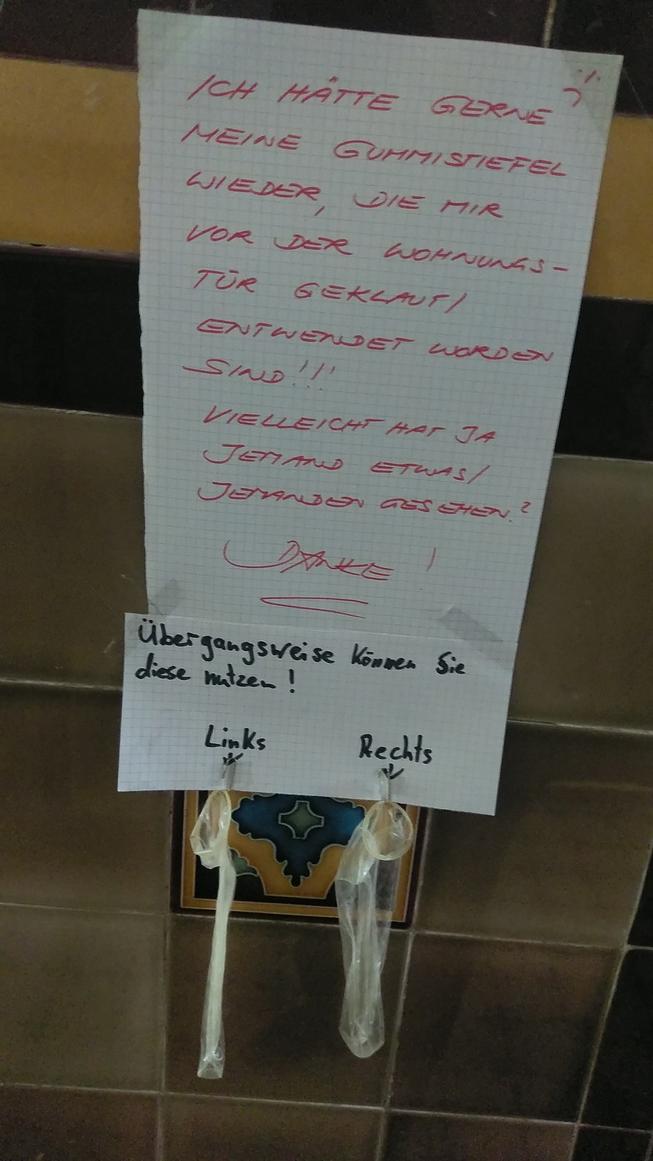 ICH HÄTTE GERNE
MEINE GUMMISTIEFEL
WIEDER, DIE MIR
VOR DER WOHNUNGS-
TÜR GEKLAUT/
ENTWENDET WORDEN
SIND!!!
VIELLEICHT HAT JA
JEMAND ETWAS/
JEMANDEN GESEHEN?
DANKE!
Übergangsweise können Sie
diese nutzen!
Links Rechts